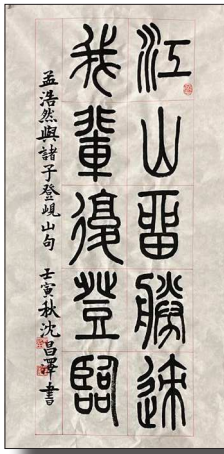 江山留勝迹
我輩復登臨
孟浩然與諸子登峴山句 壬寅秋沈昌澤書